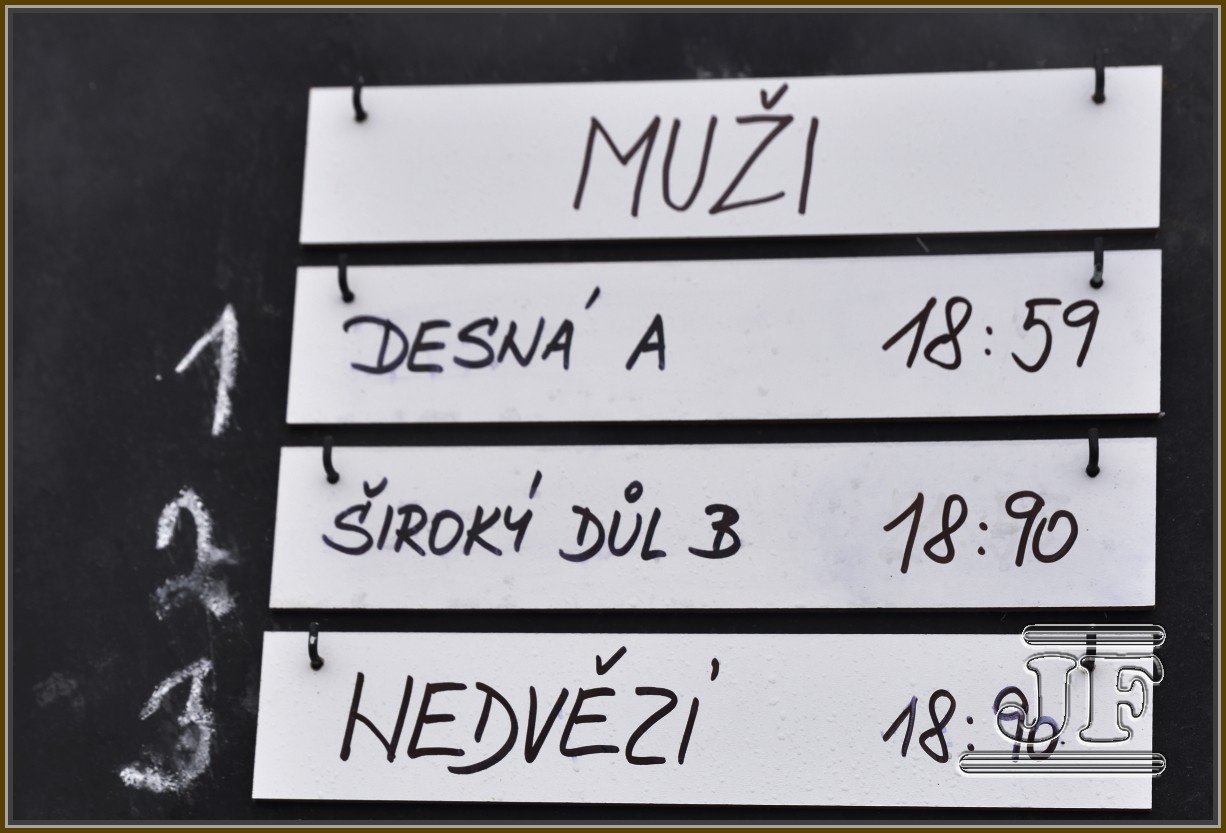 MUŽI
1 DESNÁ A 18:59
2 ŠIROKÝ DŮL B 18:90
3 NEDVĚZÍ 18:90
JF